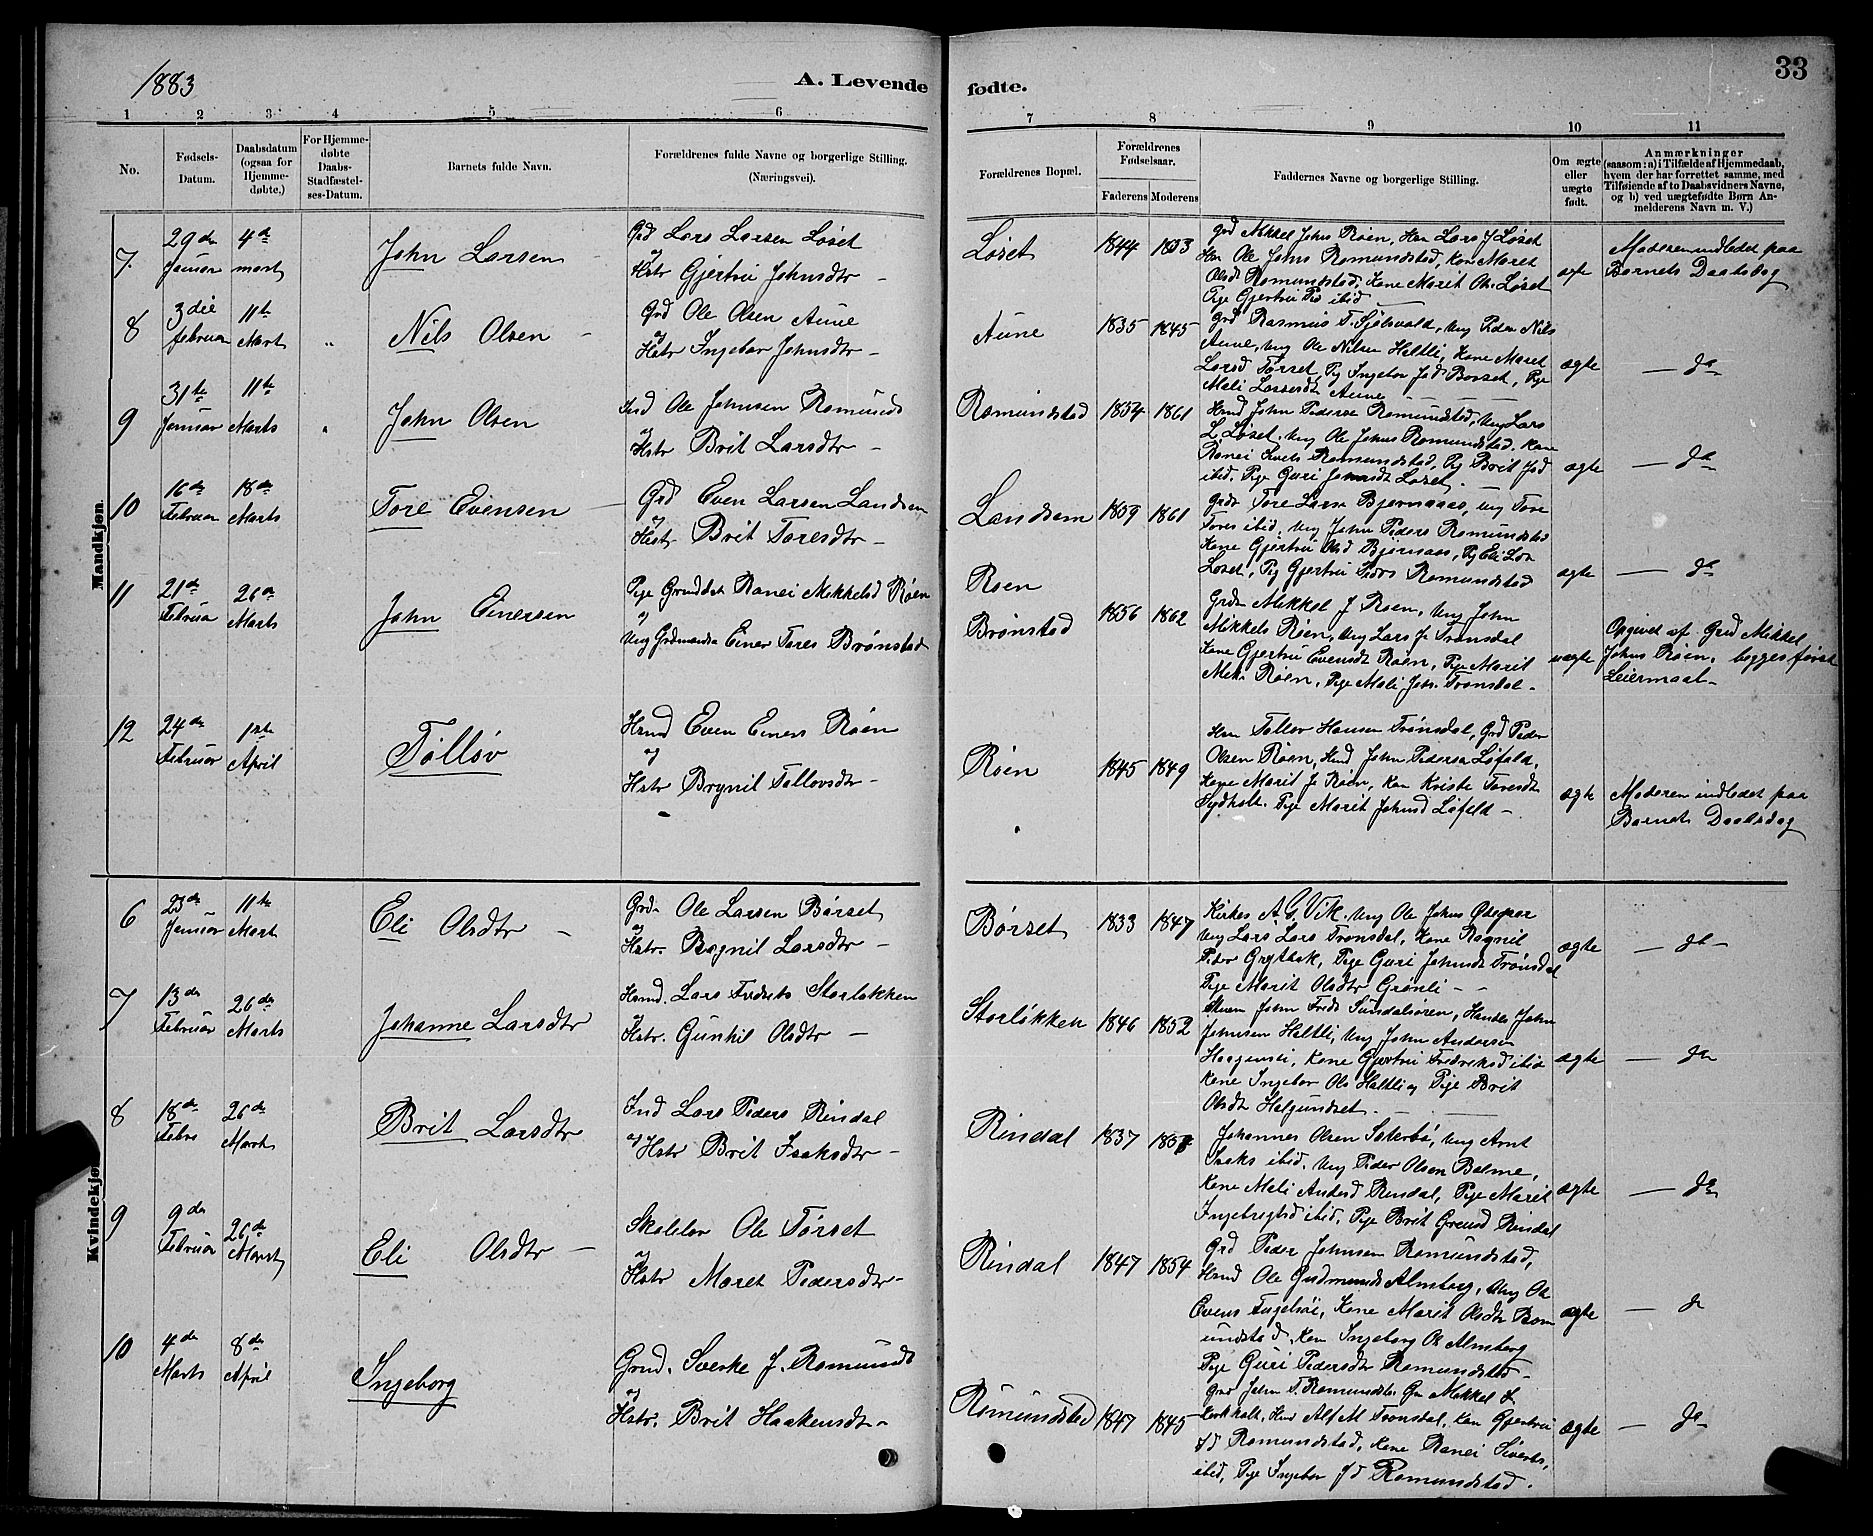 1883
A. Levende fødte.
33
1 2 3 4 5 6 7 8 9 10 11
No.
Fødsels-Datum.
Daabsdatum (ogsaa for Hjemme-døbte.)
For Hjemme-døbte Daabs-Stadfæstel-ses-Datum.
Barnets fulde Navn.
Forældrenes fulde Navne og borgerlige Stilling. (Næringsvei).
Forældrenes Bopæl.
Forældrenes Fødselsaar.
Faderens Moderens
Faddernes Navne og borgerlige Stilling.
Om ægte eller uægte født.
Anmærkninger
(saasom: a) i Tilfælde af Hjemmedaab,
hvem der har forrettet samme, med
Tilføiende af to Daabsvidners Navne,
og b) ved uægtefødte Børn An-
melderens Navn m. V.)
Mandkjøn.
7. 29de Januar 4de Mart John Larsen
Grd Lars Larsen Løset
og
Hstr Gjertru Johnsdtr
Løset 1844
Grd Mikkel Johns Røen, Hm Lars J Løset
Hm Ole Johns Romundstad, Kone Maret
Olsd Romundstad, Kone Marit Ols. Løset
Pige Gjertru Pd ibid
ægte
Moderen indledet paa
Barnets Daabsdag
8 3die Februar 11te Mart " Nils Olsen
Grd Ole Olsen Aune
og
Hstr Ingebor Johnsdtr
Aune 1835 1845
Grd Rasmus T. Sjølsvold, Ung Peder Nils
Aune, Ung Ole Nilsen Haltli, Kone Maret
Larsd Tørset, Pig Ingebor Jsd Børset, Pige
Mali Larsesdt Aune
ægte
— da
9 31te Januar 11te Marts " John Olsen
Ind Ole Johnsen Romunds
og
Hstr Brit Larsdtr
Romundstad 1854 1861
Hmd John Pederse Romundstad, Ung Lars
L Løset, Ung Ole Johns Romundstad, Kone
Ranei Romundstad, Pig Brit Jsd
ibid. Pige Guri Johnsdt Løset.
ægte
— da
10 16de Februar 18de Marts Tore Evensen
Grd Even Larsen Landsem
og
Hstr Brit Toresdtr
Landsem 1859 1861
Grdr Tore Larse Bjørnaas, Ung Tore
Tores ibid, Ung John Peders Romundstad
Kone Gjertru Olsd Bjørnaas, Pig Eli Lar
Løset, Pig Gjertru Peders Romundstad
ægte
— da
11 21de Februar 26de Marts John Einersen
Pige Grmddat Ranei Mikkelsd Røen
og
Ung Grdmandsø Einer Tores Brønstad
Røen
Brønstad 1856 1862
Grdm Mikkel J Røen, Ung John
Mikkels Røen, Ung Lars J. Trønsdal
Kone Gjertru Evensdt Røen, Pige Marit
Mik. Røen, Pige Mali Joh. Trønsdal
uægte
Opgivet af Grd Mikkel
Johns Røen. begges første
Leiermaal
12 24de Februar 1ste April Tølløv
Hmd Even Einers Røen
og
Hstr Brynil Tolløvsdtr
Røen 1845 1849
Hm Tolløv Hansen Trønsdal, Grd Peder
Olsen Røen, Hmd John Pedersen Løfald,
Kone Marit J. Røen, Kon Kristi Toresdt
Pige Marit Johnsd Løfald
ægte
Moderen indledet paa
Barnets Daabsdag
Kvindekjøn
6 23de Januar 11te Mart Eli Olsdtr
Grd Ole Larsen Børset
og
Hstr. Ragnil Larsdtr
Børset 1833 1847
Kirkes A. G. Vik. Ung Ole Johns
Ung Lars Lars Trønsdal, Kone Ragnil
Peder Grytbak, Pige Guri Johnsdt Trønsdal
Pige Marit Olsdtr Grønli
ægte
— da
7 13de Februar 26de Marts Johanne Larsdtr
Hsmd. Lars Fredriks Storløkken
og
Hstr. Gunhil Olsdtr
Storløkken 1846 1852
John Fred Sundalsøren, Handes John
Johnsen Haltli, Ung John Andersen
Kone Gjertru Fredriksd ibid
Kone Ingebor Ols Haltli og Pige Brit
Olsdt Helgundset.
ægte
— da
8 18de Febru 26de Mart Brit Larsdtr
Ind Lars Peders Rindal
og Hstr Brit Isaksdtr
Rindal 1837
Johannes Olsen Sæterbø, Ung Arnt
Isaks ibid. Ung Peder Olsen Bolme,
Kone Mali Andersd Rindal, Pige Marit
Ingebrigtsd ibid, Pige Brit Rindal
ægte
— da
9 9de Februar 26de Mart Eli Olsdtr
Skolelær Ole Tørset
og
Hstr Maret Pedersdtr
Rindal 1847 1854
Grd Peder Johnsen Romundstad,
Hmd Ole Gudmunds Almberg, Ung Ole
Evens Kone Marit Olsdtr Rom
undstad, Kon Ingeborg Ols Almberg
Pige Guri Pedersdtr Romundstad
ægte
— da
10 4de Marts 8de April Ingeborg
Grmd. Sverke J. Romunds
og
Hstr. Brit Haakensdt
Romundstad 1847 1845
Grd John T. Romundsta. Gm Mikkel L
Kirkholt, Hmd Alf M Trønsdal, Kon Gjertru
Jsd Romundstad, Kone Ranei Siverts,
ibid, Pige Ingebor Jsd Romundstad.
ægte
— da